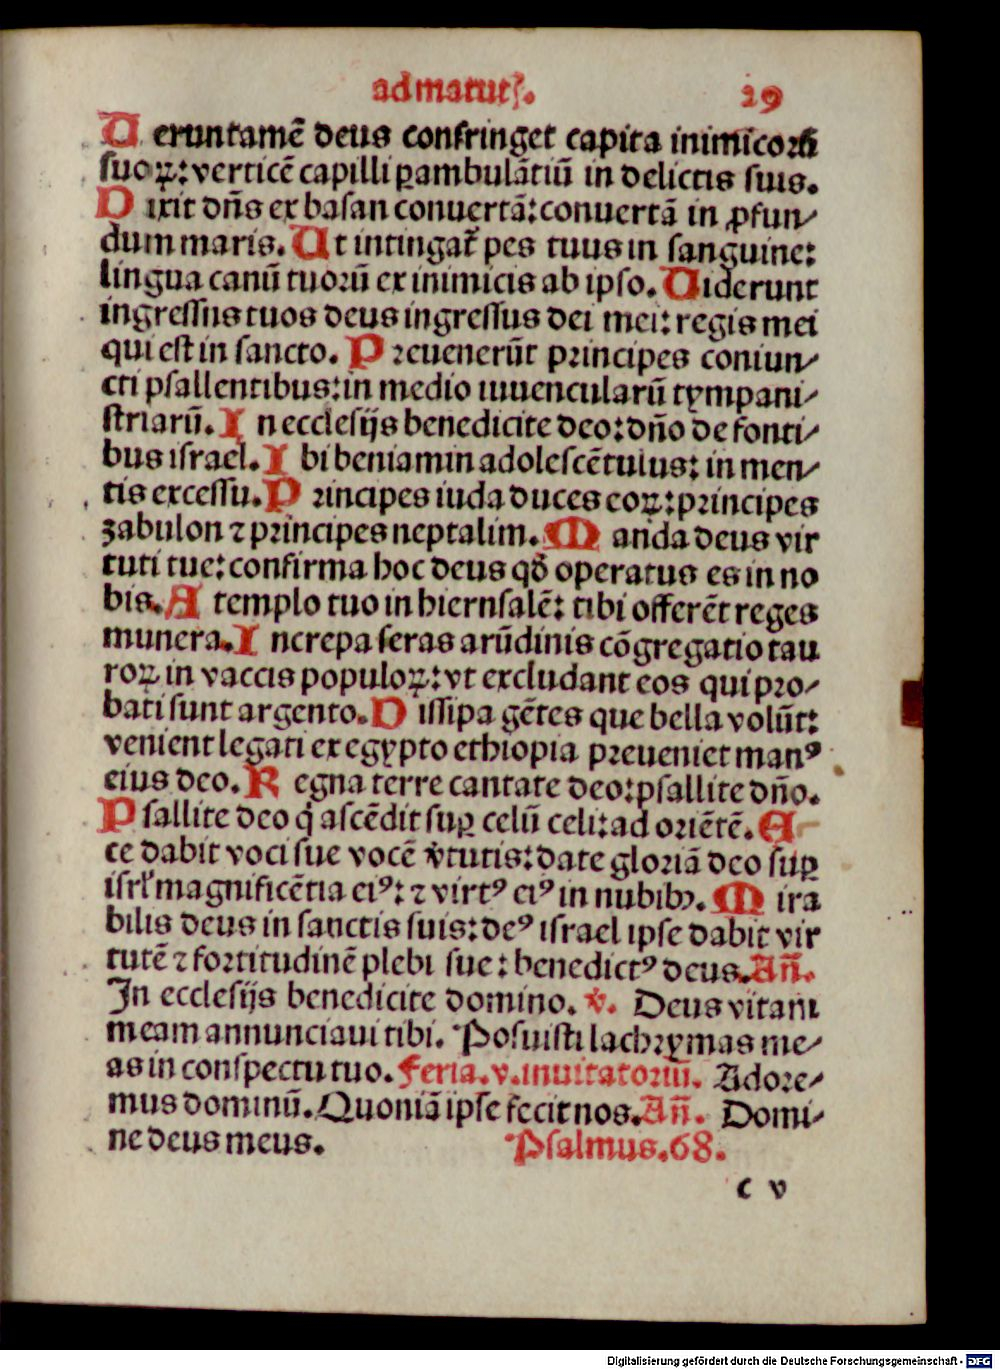 ad matuts.
29
Ueruntamē deus confringet capita inimicorū
suoꝝ: verticē capilli ꝑambulātiū in delictis suis.
Dixit dn̄s ex basan conuertā: conuertā in ꝓfun⸗
dum maris. Ut intingat̄ pes tuus in sanguine:
lingua canū tuorū ex inimicis ab ipso. Uiderunt
ingressus tuos deus ingressus dei mei: regis mei
qui est in sancto. Preuenerūt principes coniun⸗
cti psallentibus: in medio iuuencularū tympani⸗
striarū. In ecclesijs benedicite deo: dn̄o de fonti⸗
bus israel. Ibi beniamin adolescētulus: in men⸗
tis excessu. Principes iuda duces eoꝝ: principes
zabulon ⁊ principes neptalim. Manda deus vir
tuti tue: confirma hoc deus qd̄ operatus es in no
bis. A templo tuo in hiernsalē: tibi offerēt reges
munera. Increpa feras arūdinis cōgregatio tau
roꝝ in vaccis populoꝝ: vt excludant eos qui pro⸗
bati sunt argento. Dissipa gētes que bella volūt:
venient legati ex egypto ethiopia preueniet manꝰ
eius deo. Regna terre cantate deo: psallite dn̄o.
Psallite deo q̄ ascēdit suꝑ celū celi: ad oriētē. Ec
ce dabit voci sue vocē v̄tutis: date gloriā deo suꝑ
isrl̄ magnificētia eiꝰ: ⁊ virtꝰ eiꝰ in nubibꝫ. Mira
bilis deus in sanctis suis: deꝰ israel ipse dabit vir
tutē ⁊ fortitudinē plebi sue: benedictꝰ deus. An̄.
In ecclesijs benedicite domino. v̄. Deus vitam
meam annunciaui tibi. Posuisti lachrymas me⸗
as in conspectu tuo. Feria. v. inuitatoriū. Adore⸗
mus dominū. Quoniā ipse fecit nos. An̄. Domi⸗
ne deus meus. Psalmus. 68.
c v
Digitalisierung gefördert durch die Deutsche Forschungsgemeinschaft - DFG